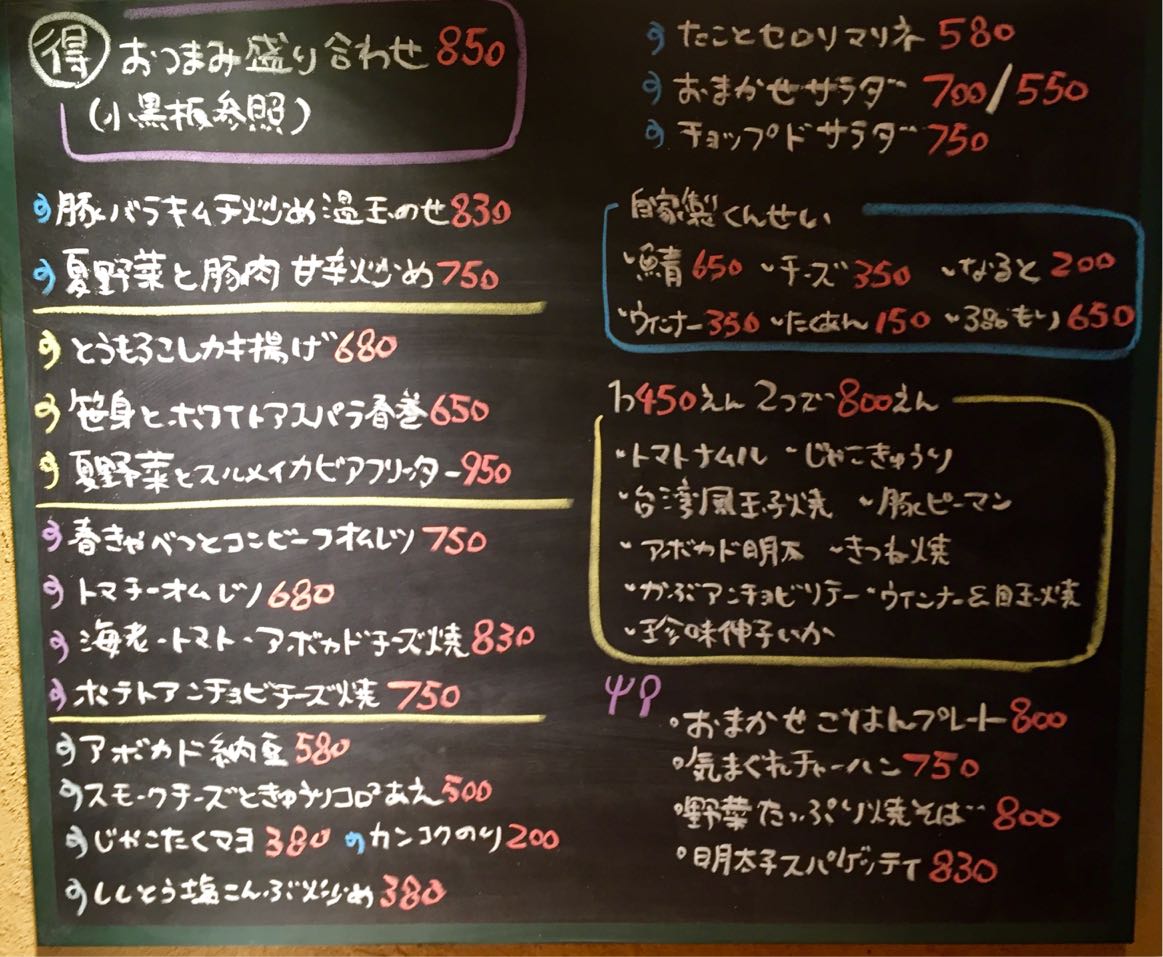 得 おつまみ盛り合わせ 850
(小黒板参照)
豚バラキムチ炒め温玉のせ 830
夏野菜と豚肉 甘辛炒め 750
とうもろこしカキ揚げ 680
笹身とホワイトアスパラ春巻 650
夏野菜とスルメイカビアフリッター 950
春きゃべつとコンビーフオムレツ 750
トマチーオムレツ 680
海老・トマト・アボカドチーズ焼 830
ポテトアンチョビチーズ焼 750
アボカド納豆 580
スモークチーズときゅうりコロコロあえ 500
じゃこたくマヨ 380 カンコクのり 200
ししとう塩こんぶ炒め 380
たことセロリマリネ 580
おまかせサラダー 700/550
チョップドサラダー 750
自家製くんせい
鯖 650 チーズ 350 なると 200
ウィンナー 350 たくあん 150 3色もり 650
1つ450えん 2つで800えん
トマトナムル じゃこきゅうり
台湾風玉子焼 豚ピーマン
アボカド明太 きつね焼
かぶアンチョビソテー ウインナー&目玉焼
珍味伸子いか
おまかせごはんプレート 800
気まぐれチャーハン 750
野菜たっぷり焼そば 800
明太子スパゲッティ 830